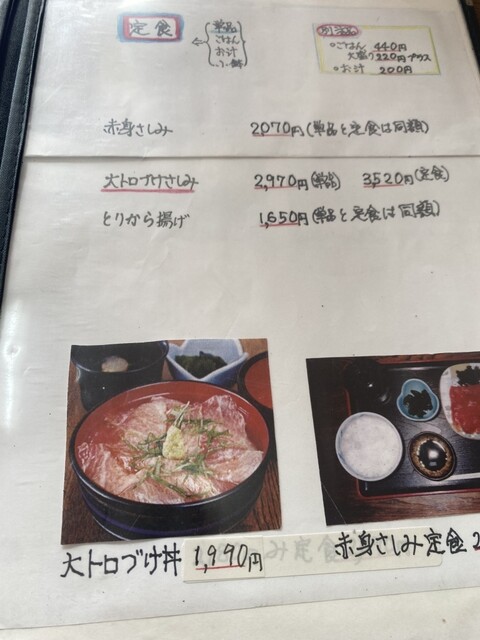 定食
単品
ごはん
お汁
小鉢
ごはん 440円
大盛り220円プラス
お汁 200円
赤身さしみ 2,070円(単品と定食は同額)
大トロづけさしみ 2,970円(単品) 3,520円(定食)
とりから揚げ 1,650円(単品と定食は同額)
大トロづけ丼 1,990円
み定食
赤身さしみ定食 2